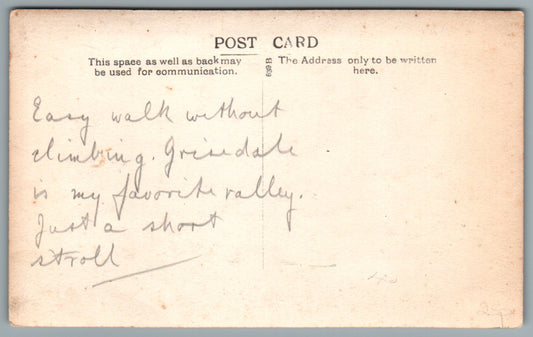 POST CARD
This space as well as back may
be used for communication.
The Address only to be written
here.
Easy walk without
climbing. Grisedale
is my favorite valley.
Just a short
stroll